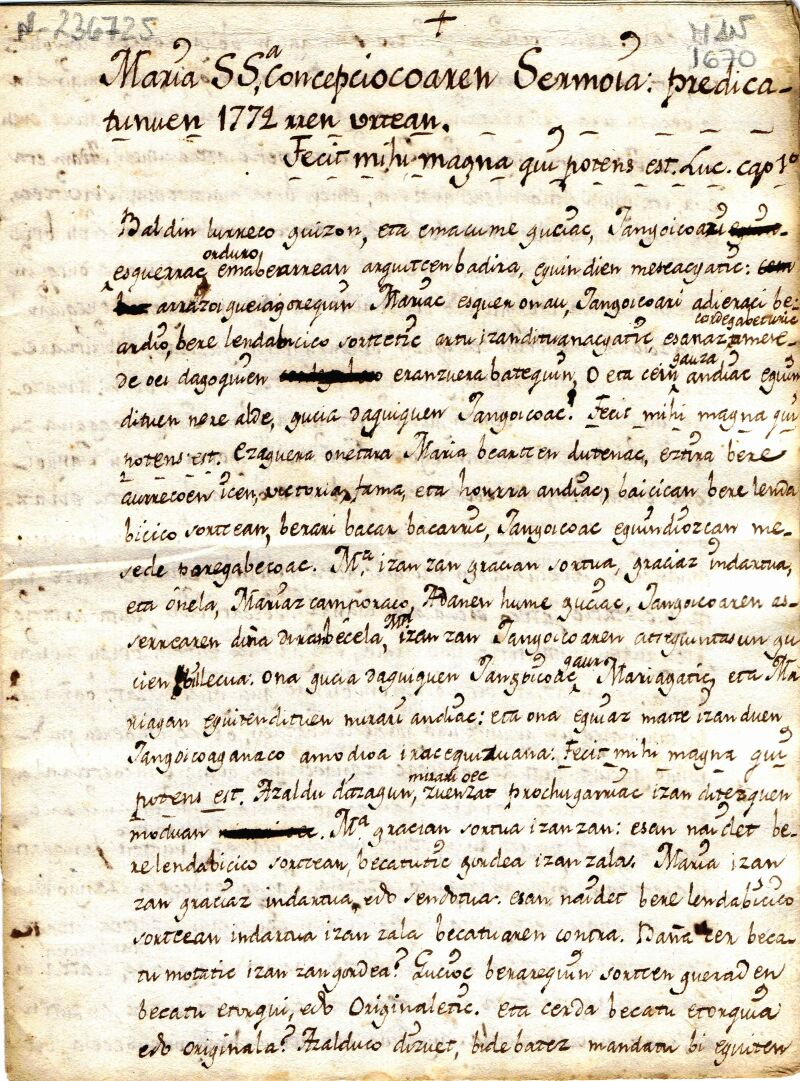 A-236725
H LS
1670
+
Maria SS.ª concepciocoaren Sermoia: predica-
tunuen 1772 rren urtean.
Fecit mihi magna qui potens est. Luc. cap 1º
Baldin lurreco guizon, eta emacume guciac, Jangoicoari
orduro
esquerrac emaberarrean arguitcen badira, eguin dien mesedeagatic:
arrazoi gueiagorequin Mariac esquer onau, Jangoicoari adieraci be-
cordegabeturic
ardio, bere lendabicico sortcetic artu izandituanagatic, esanaz, amere-
gauza
de oei dagoquien eranzuera batequin, O eta cein andiac eguin
dituen nere alde, gucia daguiquen Jangoicoac! Fecit mihi magna qui
potens est. Ezaguera onetara Maria beartcen dutenac, eztira bere
aurrecoen icen, victoria, fama, eta honrra andiac, baicican bere lenda
bicico sortcean, berari bacar bacarric, Jangoicoac eguindiozcan me-
sede paregabecoac. M.ª izan zan gracian sortua, graciaz indartua,
eta onela, Mariaz camporaco, Adanen hume guciac, Jangoicoaren as-
serrearen diña diran becela, M.ª izan zan Jangoicoaren atseguintasun gu
cien billecua. Ona gucia daguiquen Jangoicoac gaur Mariagatic, eta Ma
riagan eguiten dituen mirari andiac: eta ona eguiaz maite izan duen
Jangoicoaganaco amodioa iracequizuana: Fecit mihi magna qui
mirari oec
potens est. Azaldu dazagun, zuenzat prochugarriac izan ditezquen
moduan. M.ª gracian sortua izan zan: esan nai det be-
re lendabicico sortcean, becatutic gordea izan zala. Maria izan
zan graciaz indartua, edo sendotua. esan nai det bere lendabicico
sortcean indartua izan zala becatuaren contra. Baña cer beca-
tu motatic izan zan gordea? Gucioc berarequin sortcen gueraden
becatu etorqui, edo Originaletic. eta cerda becatu etorquia
edo originala? Azalduco dizuet, bide batez mandatu bi eguiten